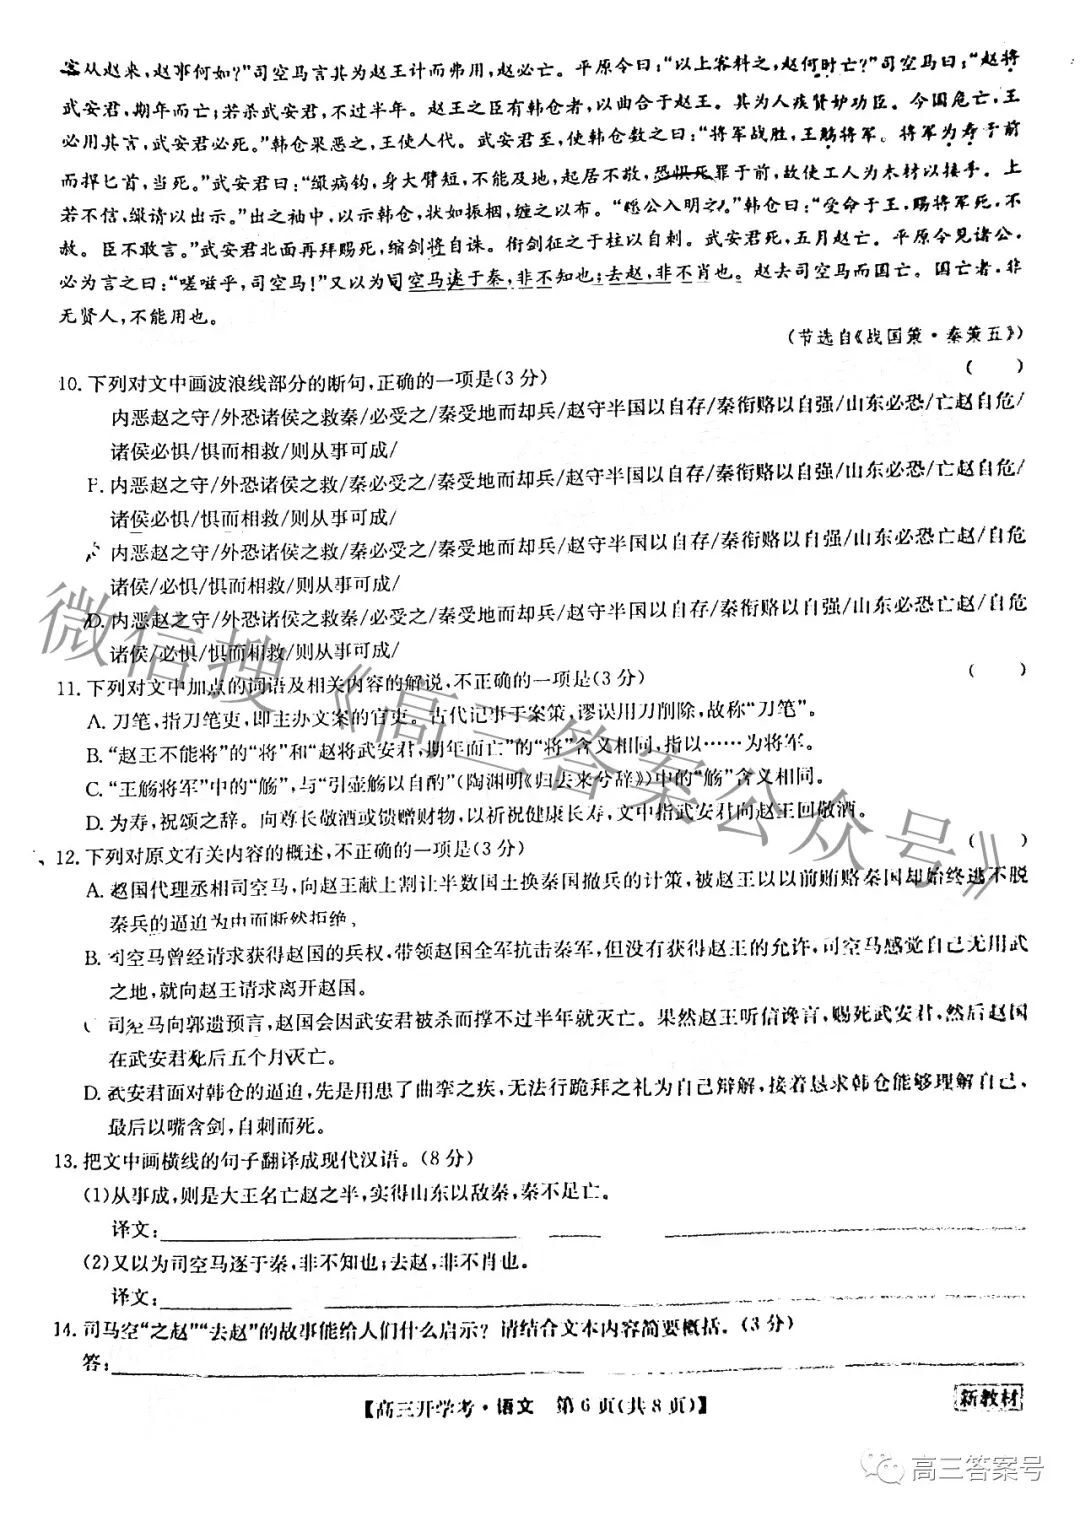 客从赵来，赵事何如？”司空马言其为赵王计而弗用，赵必亡。平原令曰：“以上客料之，赵何时亡？”司空马曰：“赵将
武安君，期年而亡；若杀武安君，不过半年。赵王之臣有韩仓者，以曲合于赵王。其为人疾贤妒功臣。今国危亡，王
必用其言，武安君必死。”韩仓果恶之，王使人代。武安君至，使韩仓数之曰：“将军战胜，王觞将军。将军为寿于前
而捍匕首，当死。”武安君曰：“缑病钩，身大臂短，不能及地，起居不敬，恐惧死罪于前，故使工人为木材以接手。上
若不信，缑请以出示。”出之袖中，以示韩仓，状如振梱，缠之以布。“愿公入明之。”韩仓曰：“受命于王，赐将军死，不
赦。臣不敢言。”武安君北面再拜赐死，缩剑将自诛。衔剑征之于柱以自刺。武安君死，五月赵亡。平原令见诸公，
必为言之曰：“嗟嗞乎，司空马！”又以为司空马逐于秦，非不知也；去赵，非不肖也。赵去司空马而国亡。国亡者，非
无贤人，不能用也。
（节选自《战国策·秦策五》）
10. 下列对文中画波浪线部分的断句，正确的一项是（3分） （ ）
内恶赵之守/外恐诸侯之救秦/必受之/秦受地而却兵/赵守半国以自存/秦衔赂以自强/山东必恐/亡赵自危/
诸侯必惧/惧而相救/则从事可成/
内恶赵之守/外恐诸侯之救/秦必受之/秦受地而却兵/赵守半国以自存/秦衔赂以自强/山东必恐/亡赵自危/
诸侯必惧/惧而相救/则从事可成/
内恶赵之守/外恐诸侯之救/秦必受之/秦受地而却兵/赵守半国以自存/秦衔赂以自强/山东必恐亡赵/自危
诸侯/必惧/惧而相救/则从事可成/
D. 内恶赵之守/外恐诸侯之救秦/必受之/秦受地而却兵/赵守半国以自存/秦衔赂以自强/山东必恐亡赵/自危
诸侯/必惧/惧而相救/则从事可成/
11. 下列对文中加点的词语及相关内容的解说，不正确的一项是（3分） （ ）
A. 刀笔，指刀笔吏，即主办文案的官吏。古代记事于案策，谬误用刀削除，故称“刀笔”。
B. “赵王不能将”的“将”和“赵将武安君，期年而亡”的“将”含义相同，指以……为将军。
C. “王觞将军”中的“觞”，与“引壶觞以自酌”（陶渊明《归去来兮辞》）中的“觞”含义相同。
D. 为寿，祝颂之辞。向尊长敬酒或馈赠财物，以祈祝健康长寿，文中指武安君向赵王回敬酒。
12. 下列对原文有关内容的概述，不正确的一项是（3分） （ ）
A. 赵国代理丞相司空马，向赵王献上割让半数国土换秦国撤兵的计策，被赵王以以前贿赂秦国却始终逃不脱
秦兵的逼迫为由而断然拒绝。
B. 司空马曾经请求获得赵国的兵权，带领赵国全军抗击秦军，但没有获得赵王的允许，司空马感觉自己无用武
之地，就向赵王请求离开赵国。
司空马向郭遗预言，赵国会因武安君被杀而撑不过半年就灭亡。果然赵王听信谗言，赐死武安君，然后赵国
在武安君死后五个月灭亡。
D. 武安君面对韩仓的逼迫，先是用患了曲挛之疾，无法行跪拜之礼为自己辩解，接着恳求韩仓能够理解自己，
最后以嘴含剑，自刺而死。
13. 把文中画横线的句子翻译成现代汉语。（8分）
（1）从事成，则是大王名亡赵之半，实得山东以敌秦，秦不足亡。
译文：
（2）又以为司空马逐于秦，非不知也；去赵，非不肖也。
译文：
14. 司马空“之赵”“去赵”的故事能给人们什么启示？请结合文本内容简要概括。（3分）
答：
【高三开学考·语文 第6页（共8页）】
新教材
微信搜《高三答案公众号》
高三答案号